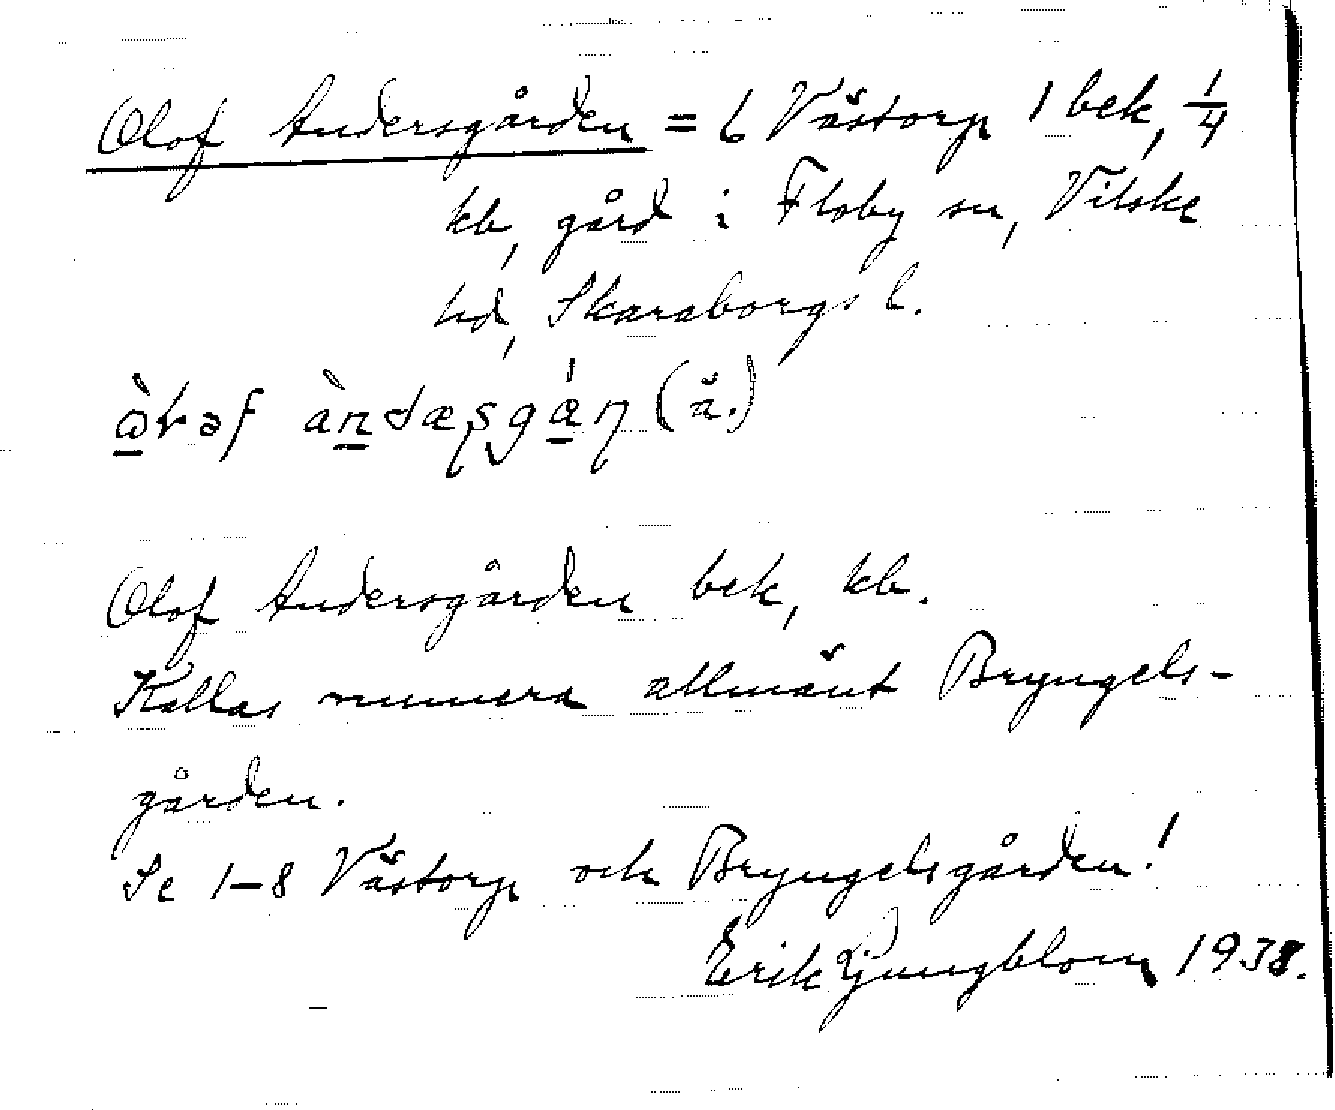 Olof Andersgården = 6 Västorp 1 bek, 1/4
kb, gård i Floby sn, Vilske
hd, Skaraborgs l.
(ă.)
Olof Andersgården bek, kb.
Kallas numera allmänt Bryngels-
gården.
Se 1-8 Västorp och Bryngelsgården!
Erik Ljungblom 1938.